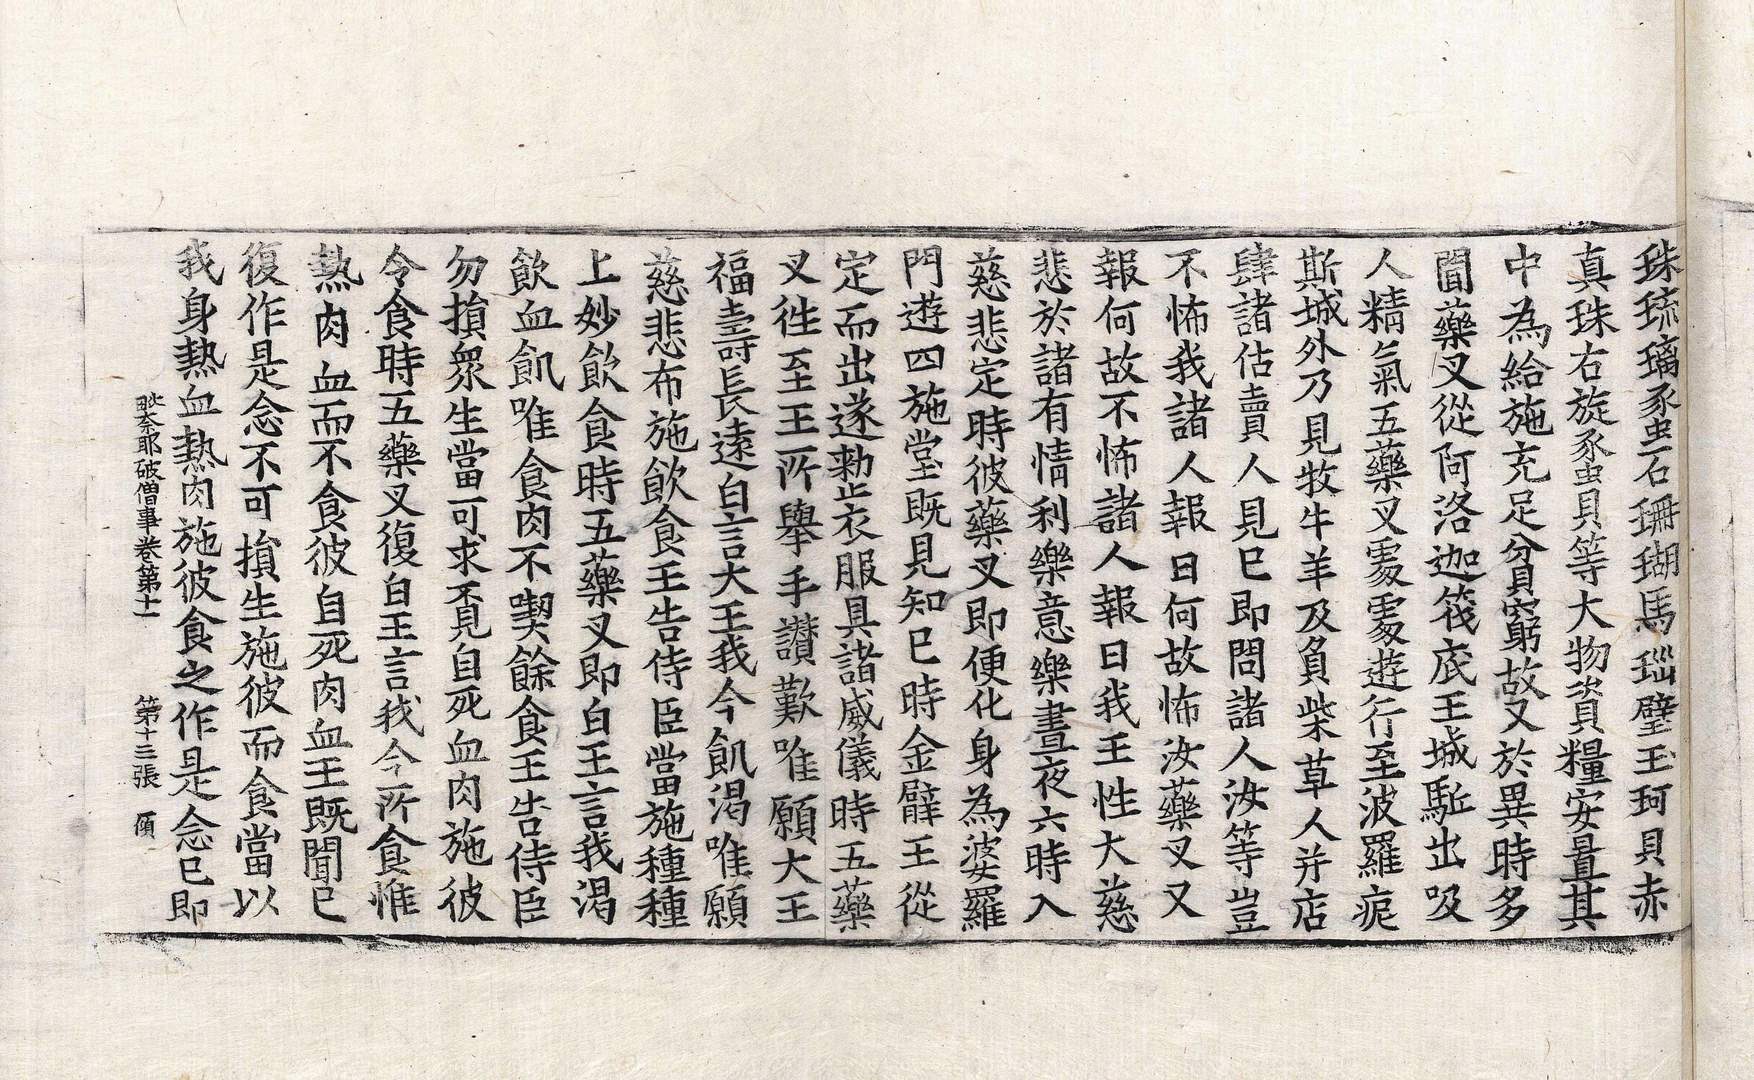 珠琉璃䗍石珊瑚馬瑙璧玉珂貝赤
真珠右旋䗍貝等大物資糧安置其
中為給施充足貧窮故又於異時多
聞藥叉從阿洛迦筏底王城駈出吸
人精氣五藥叉處處遊行至波羅痆
斯城外乃見牧牛羊及負柴草人并店
肆諸估賣人見巳即問諸人汝等豈
不怖我諸人報曰何故怖汝藥叉又
報何故不怖諸人報曰我王性大慈
悲於諸有情利樂意樂晝夜六時入
慈悲定時彼藥叉即便化身為婆羅
門遊四施堂既見知巳時金臂王從
定而出遂勑㱏衣服具諸威儀時五藥
叉徃至王所擧手讃歎唯願大王
福壽長遠白言大王我今飢渴唯願
慈悲布施飲食王告侍臣當施種種
上妙飲食時五藥叉即白王言我渴
飲血飢唯食肉不喫餘食王告侍臣
勿損衆生當可求覓自死血肉施彼
令食時五藥叉復白王言我今所食惟
熱肉血而不食彼自死肉血王既聞巳
復作是念不可損生施彼而食當以
我身熱血熱肉施彼食之作是念巳即
毗奈耶破僧事卷第十一 第十三張 傾